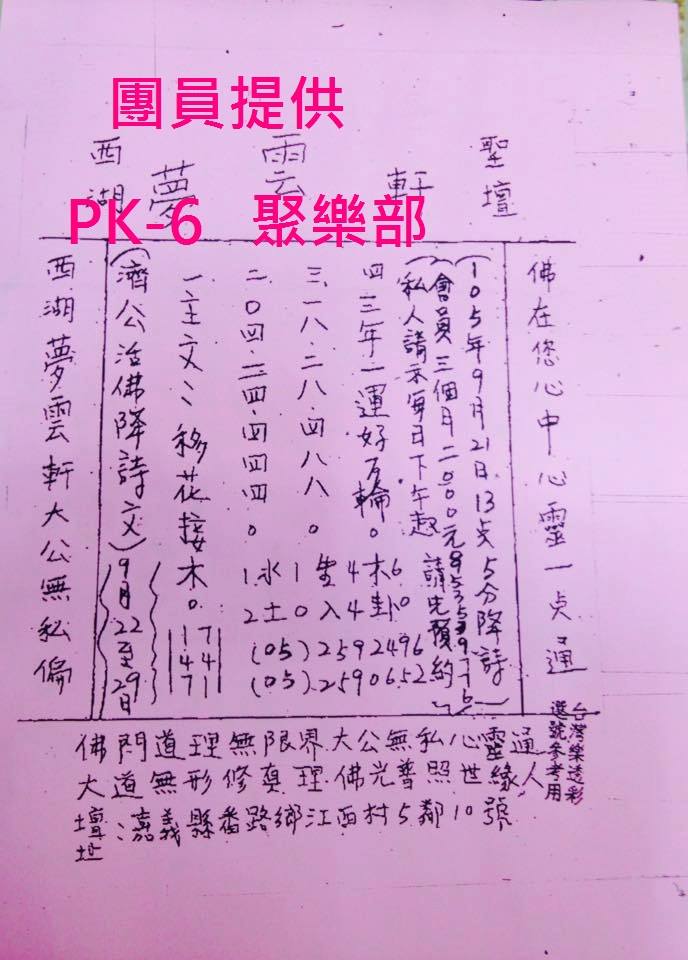 團員提供
西湖 夢雲軒 聖壇
PK-6 聚樂部
佛在您心中心靈一点通
(105年9月21日13点5分降詩)
會員三個月二000元
私人請示每日下午起 請先預約
四三年二運好石輪。
三.一八.二八.四八八。
二.0四.二四.四四四。
一主文:移花接木。
(濟公活佛降詩文)
9月22至29日
西湖夢雲軒大公無私偏
1.水1生4木6
2土0入4卦0
(05)2592496
(05)2590652
17
44
71
佛門道理無限界大公無私心靈通
大道無形修真理佛光普照世靈緣人
壇址:嘉義縣番路鄉江西村5鄰10號
台灣樂透彩
選號參考用